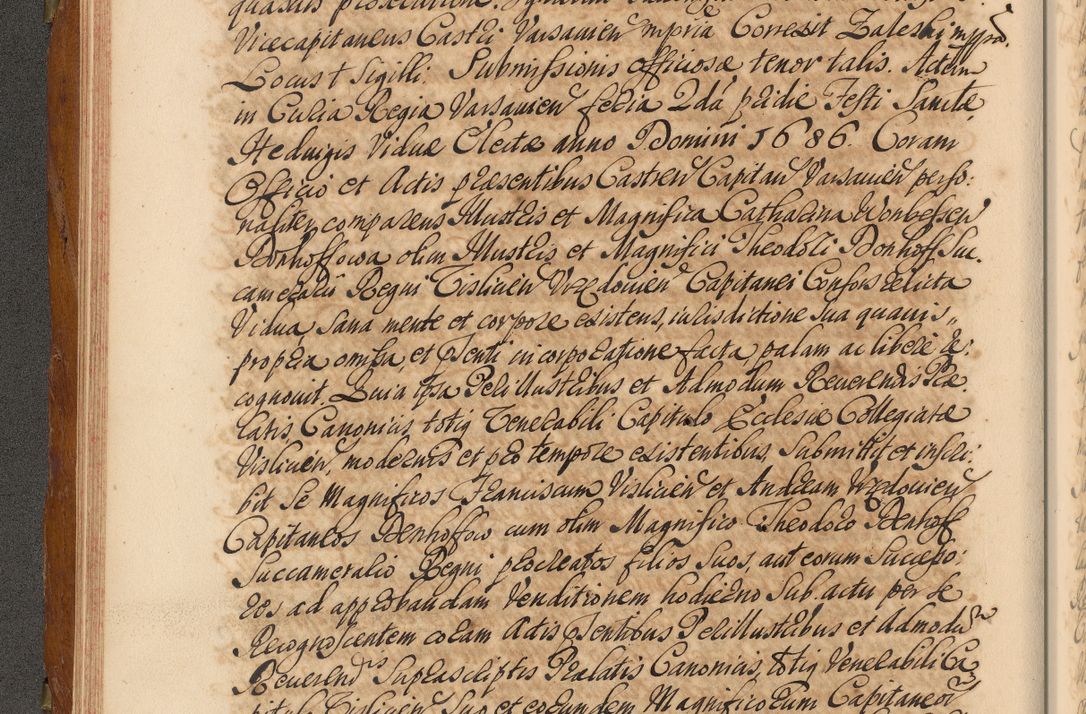 Vicecapitaneus Castri Varsavien mpria Correxit Zaleski mppa.
Locus t Sigilli. Submissionis officiosæ tenor talis. Actum
in Curia Regia Varsavien feria 2da pridie Festi Sanctæ
Heduigis Viduæ Electæ anno Domini 1686. Coram
Officio et Actis præsentibus Castren Capitan Varsavien perso-
naliter comparens Illustris et Magnifica Catharina
Donhoffowa olim Illustris et Magnifici Theodori Donhoff Suc-
camerarii Regni Visliccien Vrzędouien Capitanei Consors relicta
Vidua, sana mente et corpore existens, iurisdictione sua quavis,,
propria omissa, et Psenti incorporatione facta, palam ac libere re:
cognovit. Quia ipsa Perillustribus et Admodum Reverendis Præ
latis, Canonicis totiq Venerabili Capitulo Ecclesiæ Collegiatæ
Vislicien, modernis et pro tempore existentibus, Submittit et inscri:
bit Se Magnificos Franciscum Vislicien et Andream Vrzędouien
Capitaneos Denhoffow cum olim Magnifico Theodoro Denhoff
Succamerario Regni procreatos filios suos, aut eorum Successo:
res ad approbandam Venditionem hodierno Sub actu per se
Recognoscentem coram Actis Psentibus Perillustribus et Admodu
Reverendis Suprascriptis Prælatis Canonicis totiq Venerabili Ca
pitulo Vislicien Suo et eorundem Magnificorum Capitaneor